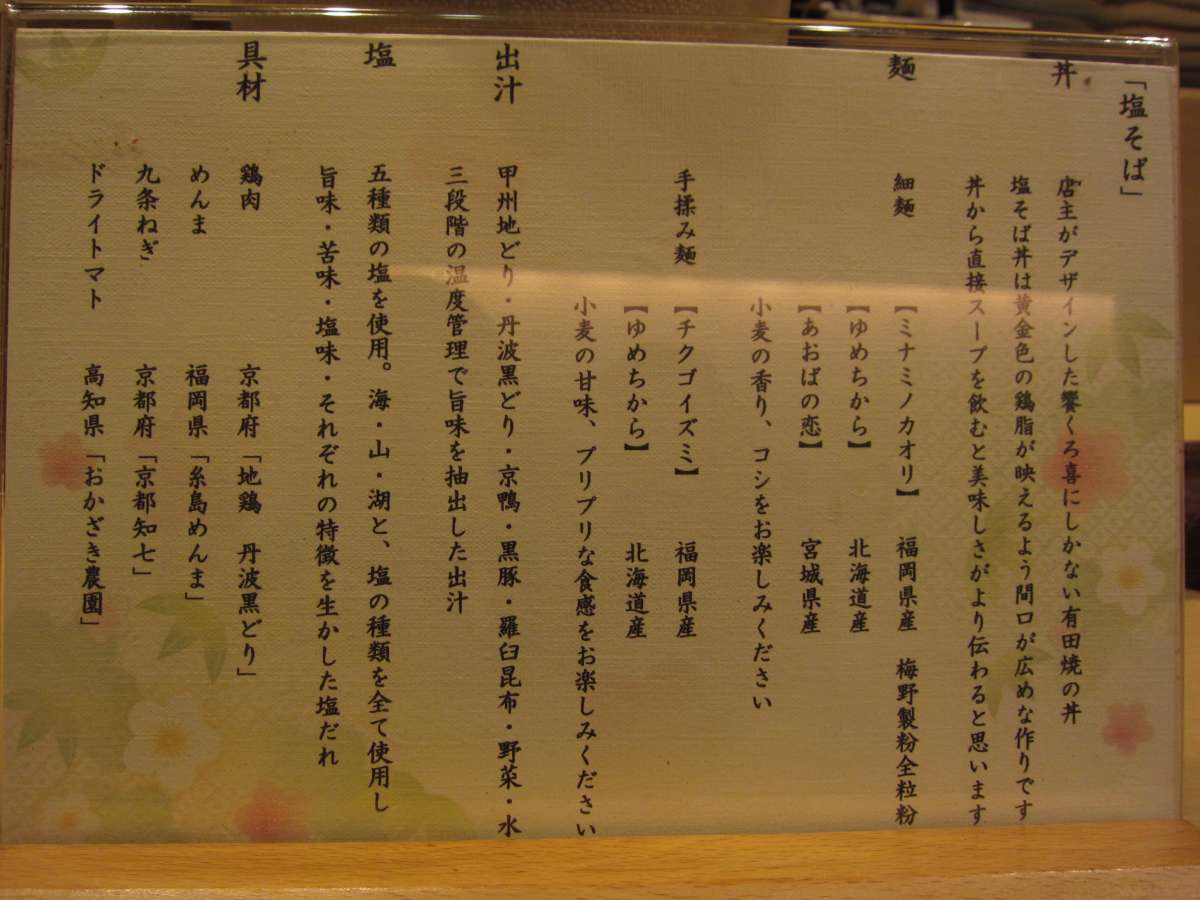 「塩そば」
丼 店主がデザインした饗くろ喜にしかない有田焼の丼
塩そば丼は黄金色の鶏脂が映えるよう間口が広めな作りです
丼から直接スープを飲むと美味しさがより伝わると思います
麺 細麺 【ミナミノカオリ】 福岡県産 梅野製粉全粒粉
【ゆめちから】 北海道産
【あおばの恋】 宮城県産
小麦の香り、コシをお楽しみください
手揉み麺 【チクゴイズミ】 福岡県産
【ゆめちから】 北海道産
小麦の甘味、プリプリな食感をお楽しみください
出汁 甲州地どり・丹波黒どり・京鴨・黒豚・羅臼昆布・野菜・水
三段階の温度管理で旨味を抽出した出汁
塩 五種類の塩を使用。海・山・湖と、塩の種類を全て使用し
旨味・苦味・塩味・それぞれの特徴を生かした塩だれ
具材 鶏肉 京都府「地鶏 丹波黒どり」
めんま 福岡県「糸島めんま」
九条ねぎ 京都府「京都知七」
ドライトマト 高知県「おかざき農園」